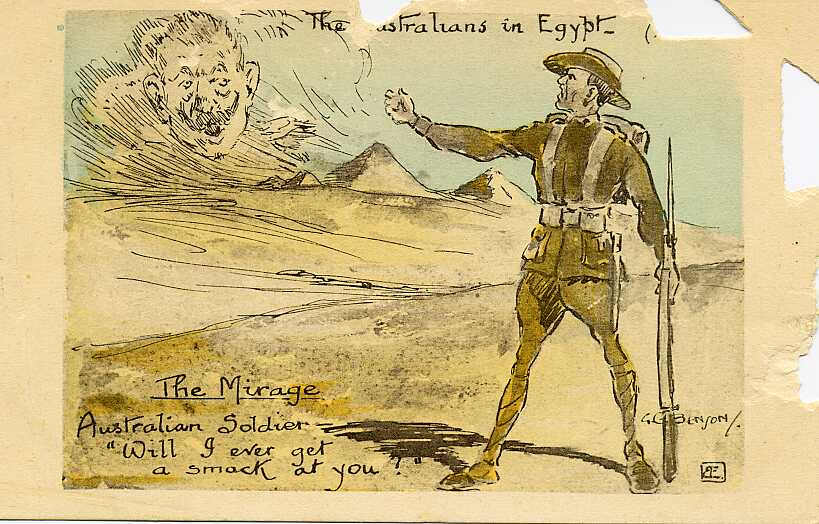 The Australians in Egypt
The Mirage
Australian Soldier
"Will I ever get
a smack at you?"
G.C. BENSON